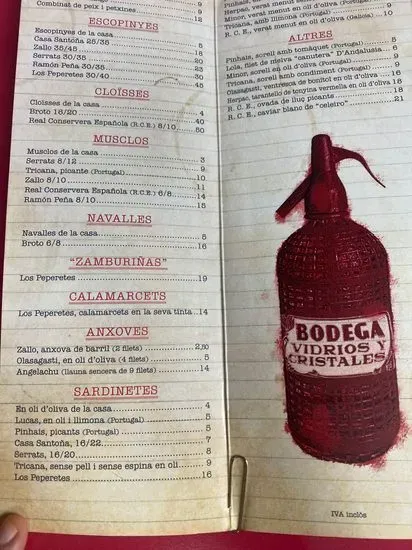 Combinat de peix i petxines 12
ESCOPINYES
Escopinyes de la casa 5
Casa Santoña 25/35 18
Zallo 35/45 20
Serrats 30/35 23
Ramón Peña 30/35 25
Los Peperetes 30/40 45
CLOÏSSES
Cloïsses de la casa 4
Broto 16/20 40
Real Conservera Española (R.C.E.) 8/10 50
MUSCLOS
Musclos de la casa 3
Serrats 8/12 9
Tricana, picante (Portugal) 10
Zallo 8/10 11
Real Conservera Española (R.C.E.) 6/8 14
Ramón Peña 8/10 15
NAVALLES
Navalles de la casa 5
Broto 6/8 16
"ZAMBURIÑAS"
Los Peperetes 19
CALAMARCETS
Los Peperetes, calamarcets en la seva tinta 14
ANXOVES
Zallo, anxova de barril (2 filets) 2,50
Olasagasti, en oli d'oliva (4 filets) 5
Angelachu (llauna sencera de 9 filets) 14
SARDINETES
En oli d'oliva de la casa 4
Lucas, en oli i llimona (Portugal) 5
Pinhais, picants (Portugal) 5
Casa Santoña, 16/22 7
Serrats, 16/20 8
Tricana, sense pell i sense espina en oli 9
Los Peperetes 16
Minor, veras menut en oli d'oliva (Portugal) 5
Tricana, amb llimona (Portugal) 9
R. C. E., verat menut en oli d'oliva (Galicia) 10
ALTRES
Pinhais, sorell amb tomàquet (Portugal) 5
Lola, filet de melva "canutera" D'Andalusia 6
Minor, sorell en oli d'oliva (Portugal) 6
Tricana, sorell amb condiment (Portugal) 9
Olasagasti, ventresca de bonítol en oli d'oliva 16
Herpac, tarantello de tonyina vermella en oli d'oliva 18
R. C. E., ovada de lluç picant 16
R. C. E., caviar blanc de "celeiro" 21
BODEGA
VIDRIOS Y
CRISTALES
IVA inclòs